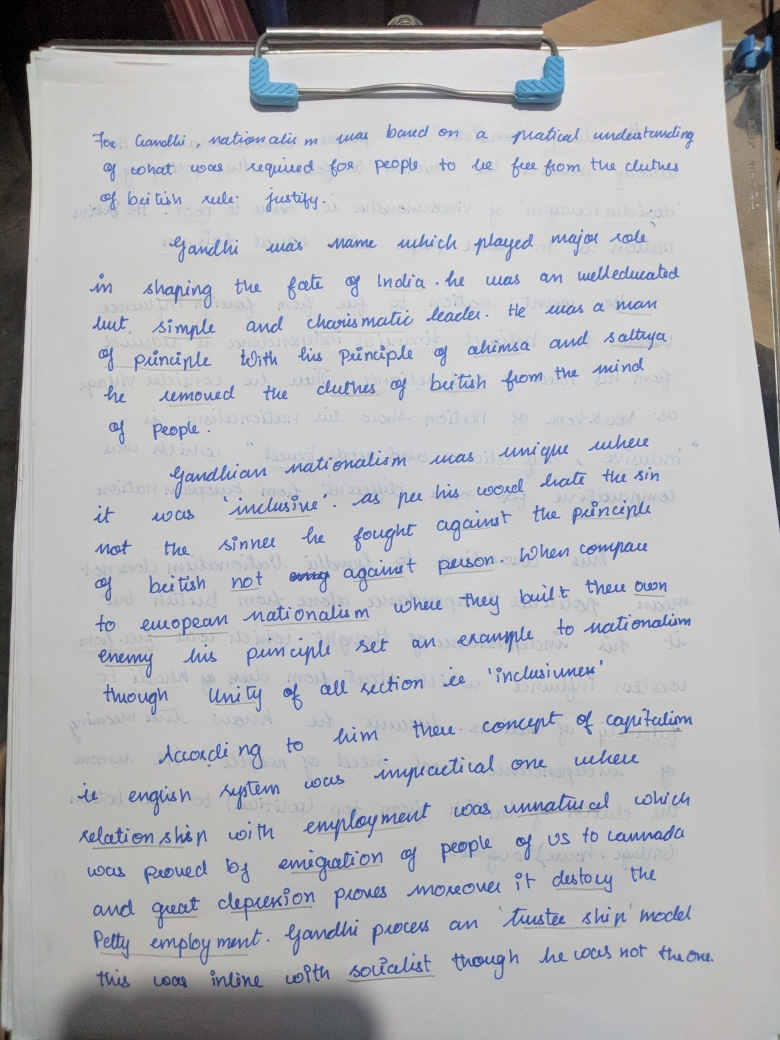 For Gandhi, nationalism was based on a pratical understanding
of what was required for people to be free from the clutches
of british rule. justify.
Gandhi was name which played major role
in shaping the fate of India. he was an welleducated
but simple and charismatic leader. He was a man
of principle with his Principle of ahimsa and sattaya
he removed the clutches of british from the mind
of People.
Gandhian nationalism was unique where
it was 'inclusive'. as per his word hate the sin
not the sinner he fought against the principle
of british not against person. When compare
to european nationalism where they built there own
enemy his principle set an example to nationalism
through Unity of all section ie 'inclusivness'
According to him there concept of capitalism
ie english system was impractical one where
relationship with employment was unnatural which
was proved by emigration of people of US to cannada
and great depression proves moreover it destory the
Petty employment. Gandhi process an 'trustee ship' model
this was inline with socialist though he was not the one.